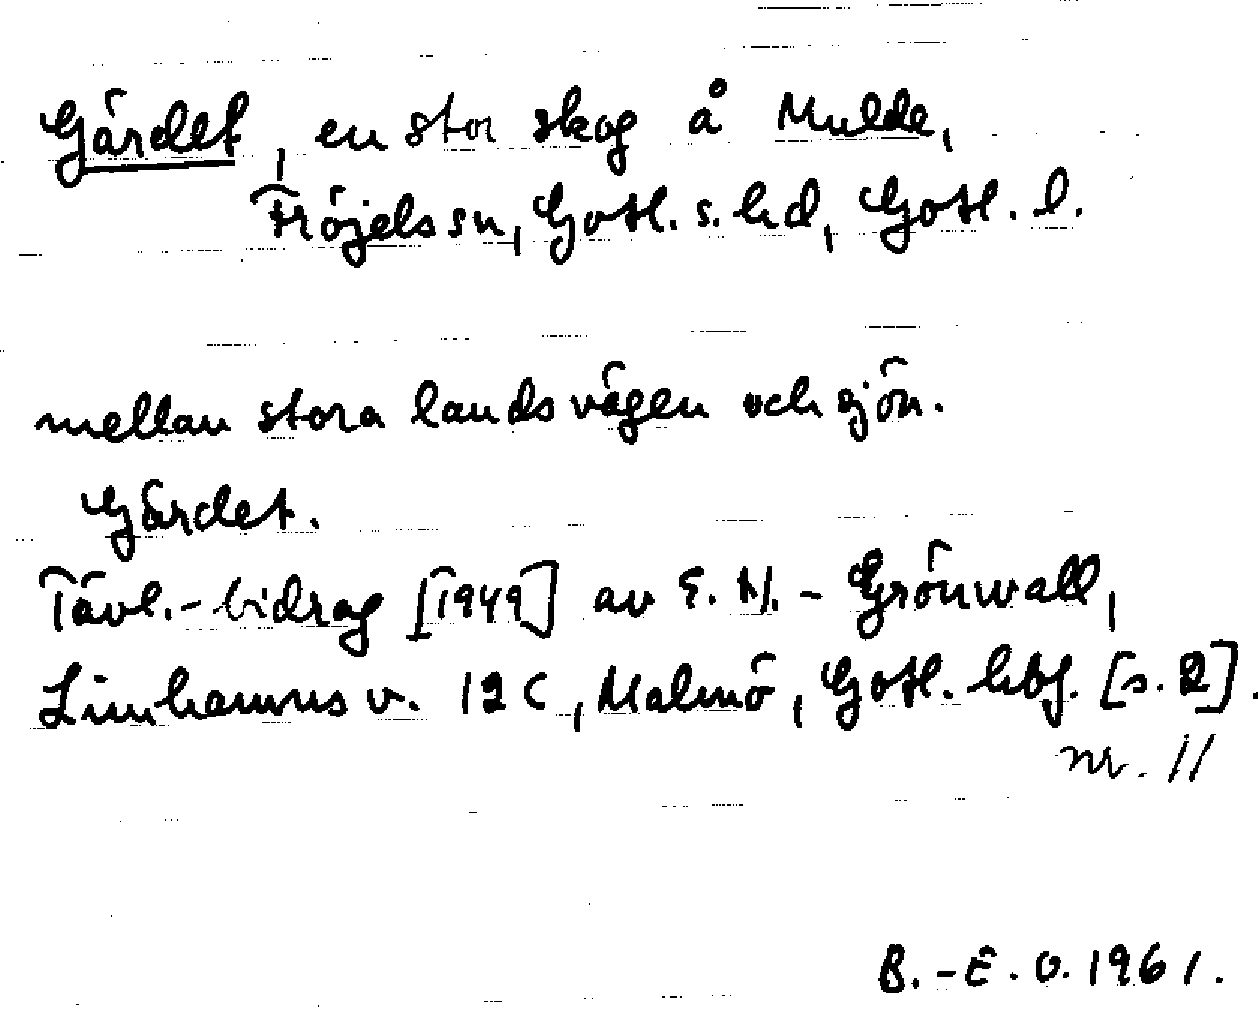 Gärdet, en stor skog å Mulde,
Fröjels sn, Gotl. s. hd, Gotl. l.
mellan stora landsvägen och sjön.
Gärdet.
Tävl.-bidrag [1949] av E. N.-Grönwall,
Limhamns v. 12 C, Malmö, Gotl. hbf. [s. 2].
nr. 11
B.-E. O. 1961.